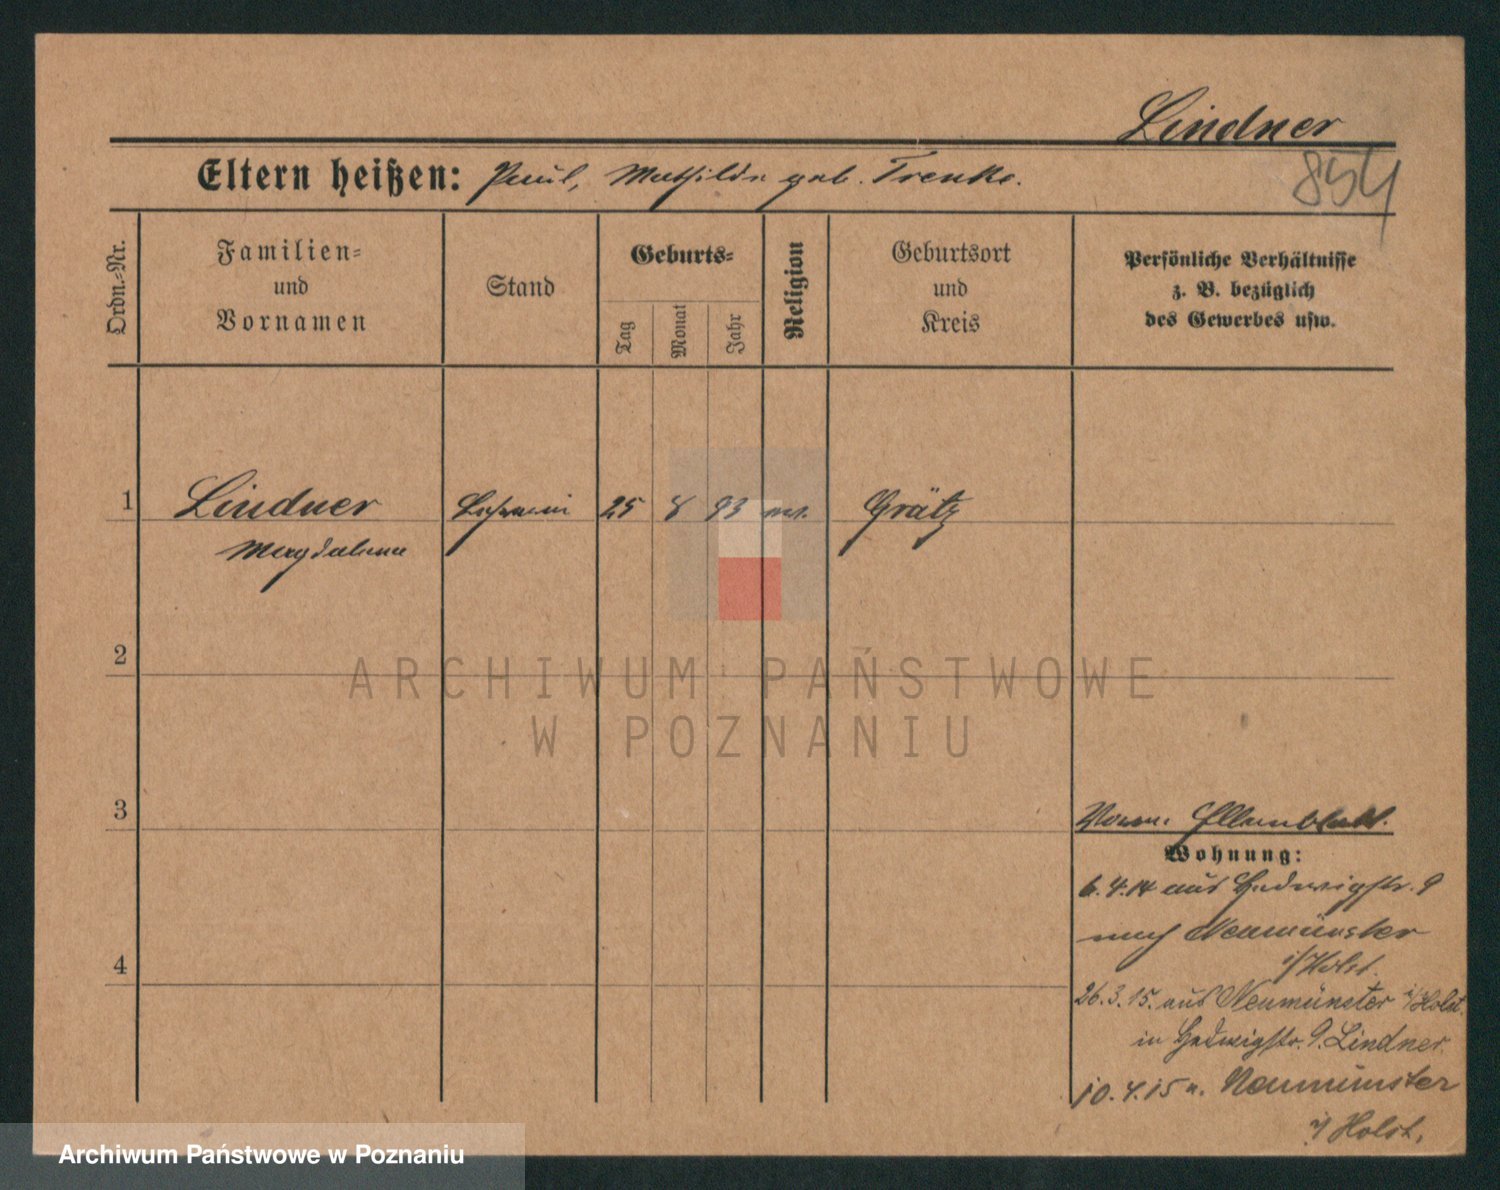 Lindner
854
Eltern heißen: Paul, Mathilde geb. Trenke.
Ordn.-Nr.
Familien-
und
Vornamen
Stand
Geburts-
Tag
Monat
Jahr
Religion
Geburtsort
und
Kreis
Persönliche Verhältnisse
z. B. bezüglich
des Gewerbes usw.
1 Lindner 25 8 93 Grätz
Magdalena
2
3
4
Wohnung:
6.4.14 aus Hedwigstr. 9
nach Neumünster
i/Holst.
26.3.15. aus Neumünster i/Holst.
in Hedwigstr. 9. Lindner.
10.4.15 n. Neumünster
i/Holst.
ARCHIWUM PAŃSTWOWE
W POZNANIU
Archiwum Państwowe w Poznaniu